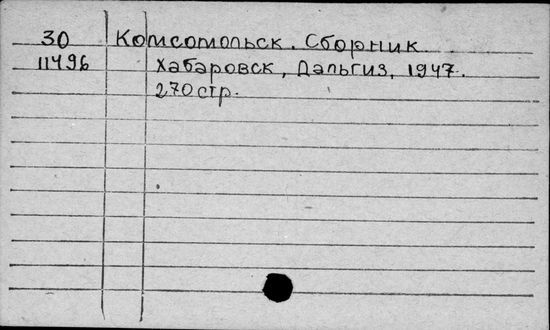 30 Комсомольск. Сборник
11496 Хабаровск, Дальгиз, 1947.
270 стр.